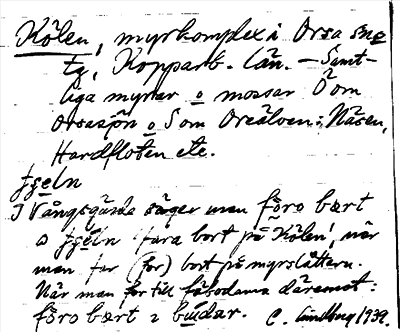 Kölen, myrkomplex i Orsa sne
tg, Kopparb. län. – Samt-
liga myrar o mossar Ö om
Orsasjön o S om Oreälven: Näsen,
Hardfloten etc.
I Vångsgärde säger man
fara bort på Kölen', när
man far (for) bort på myrslåttern.
När man for till fäbodarna däremot:
C. 1939.